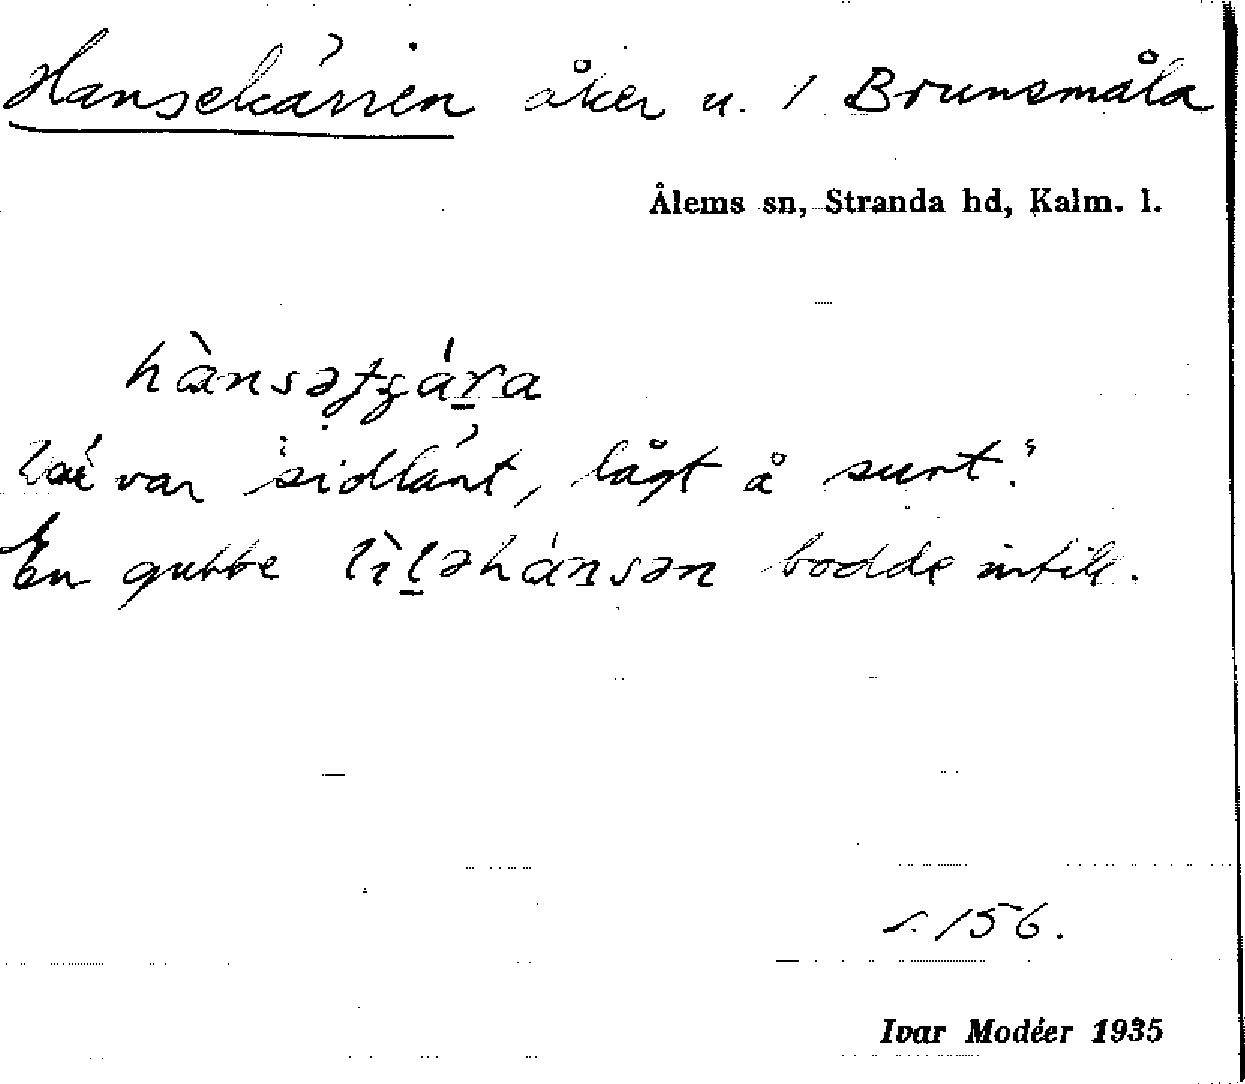 Hansekärren åker u. 1 Brunsmåla
Ålems sn, Stranda hd, Kalm. l.
hànsəʈʂára
var "sidlänt, lågt å surt."
En gubbe lìləhánsən bodde intill.
s. 156.
Ivar Modéer 1935